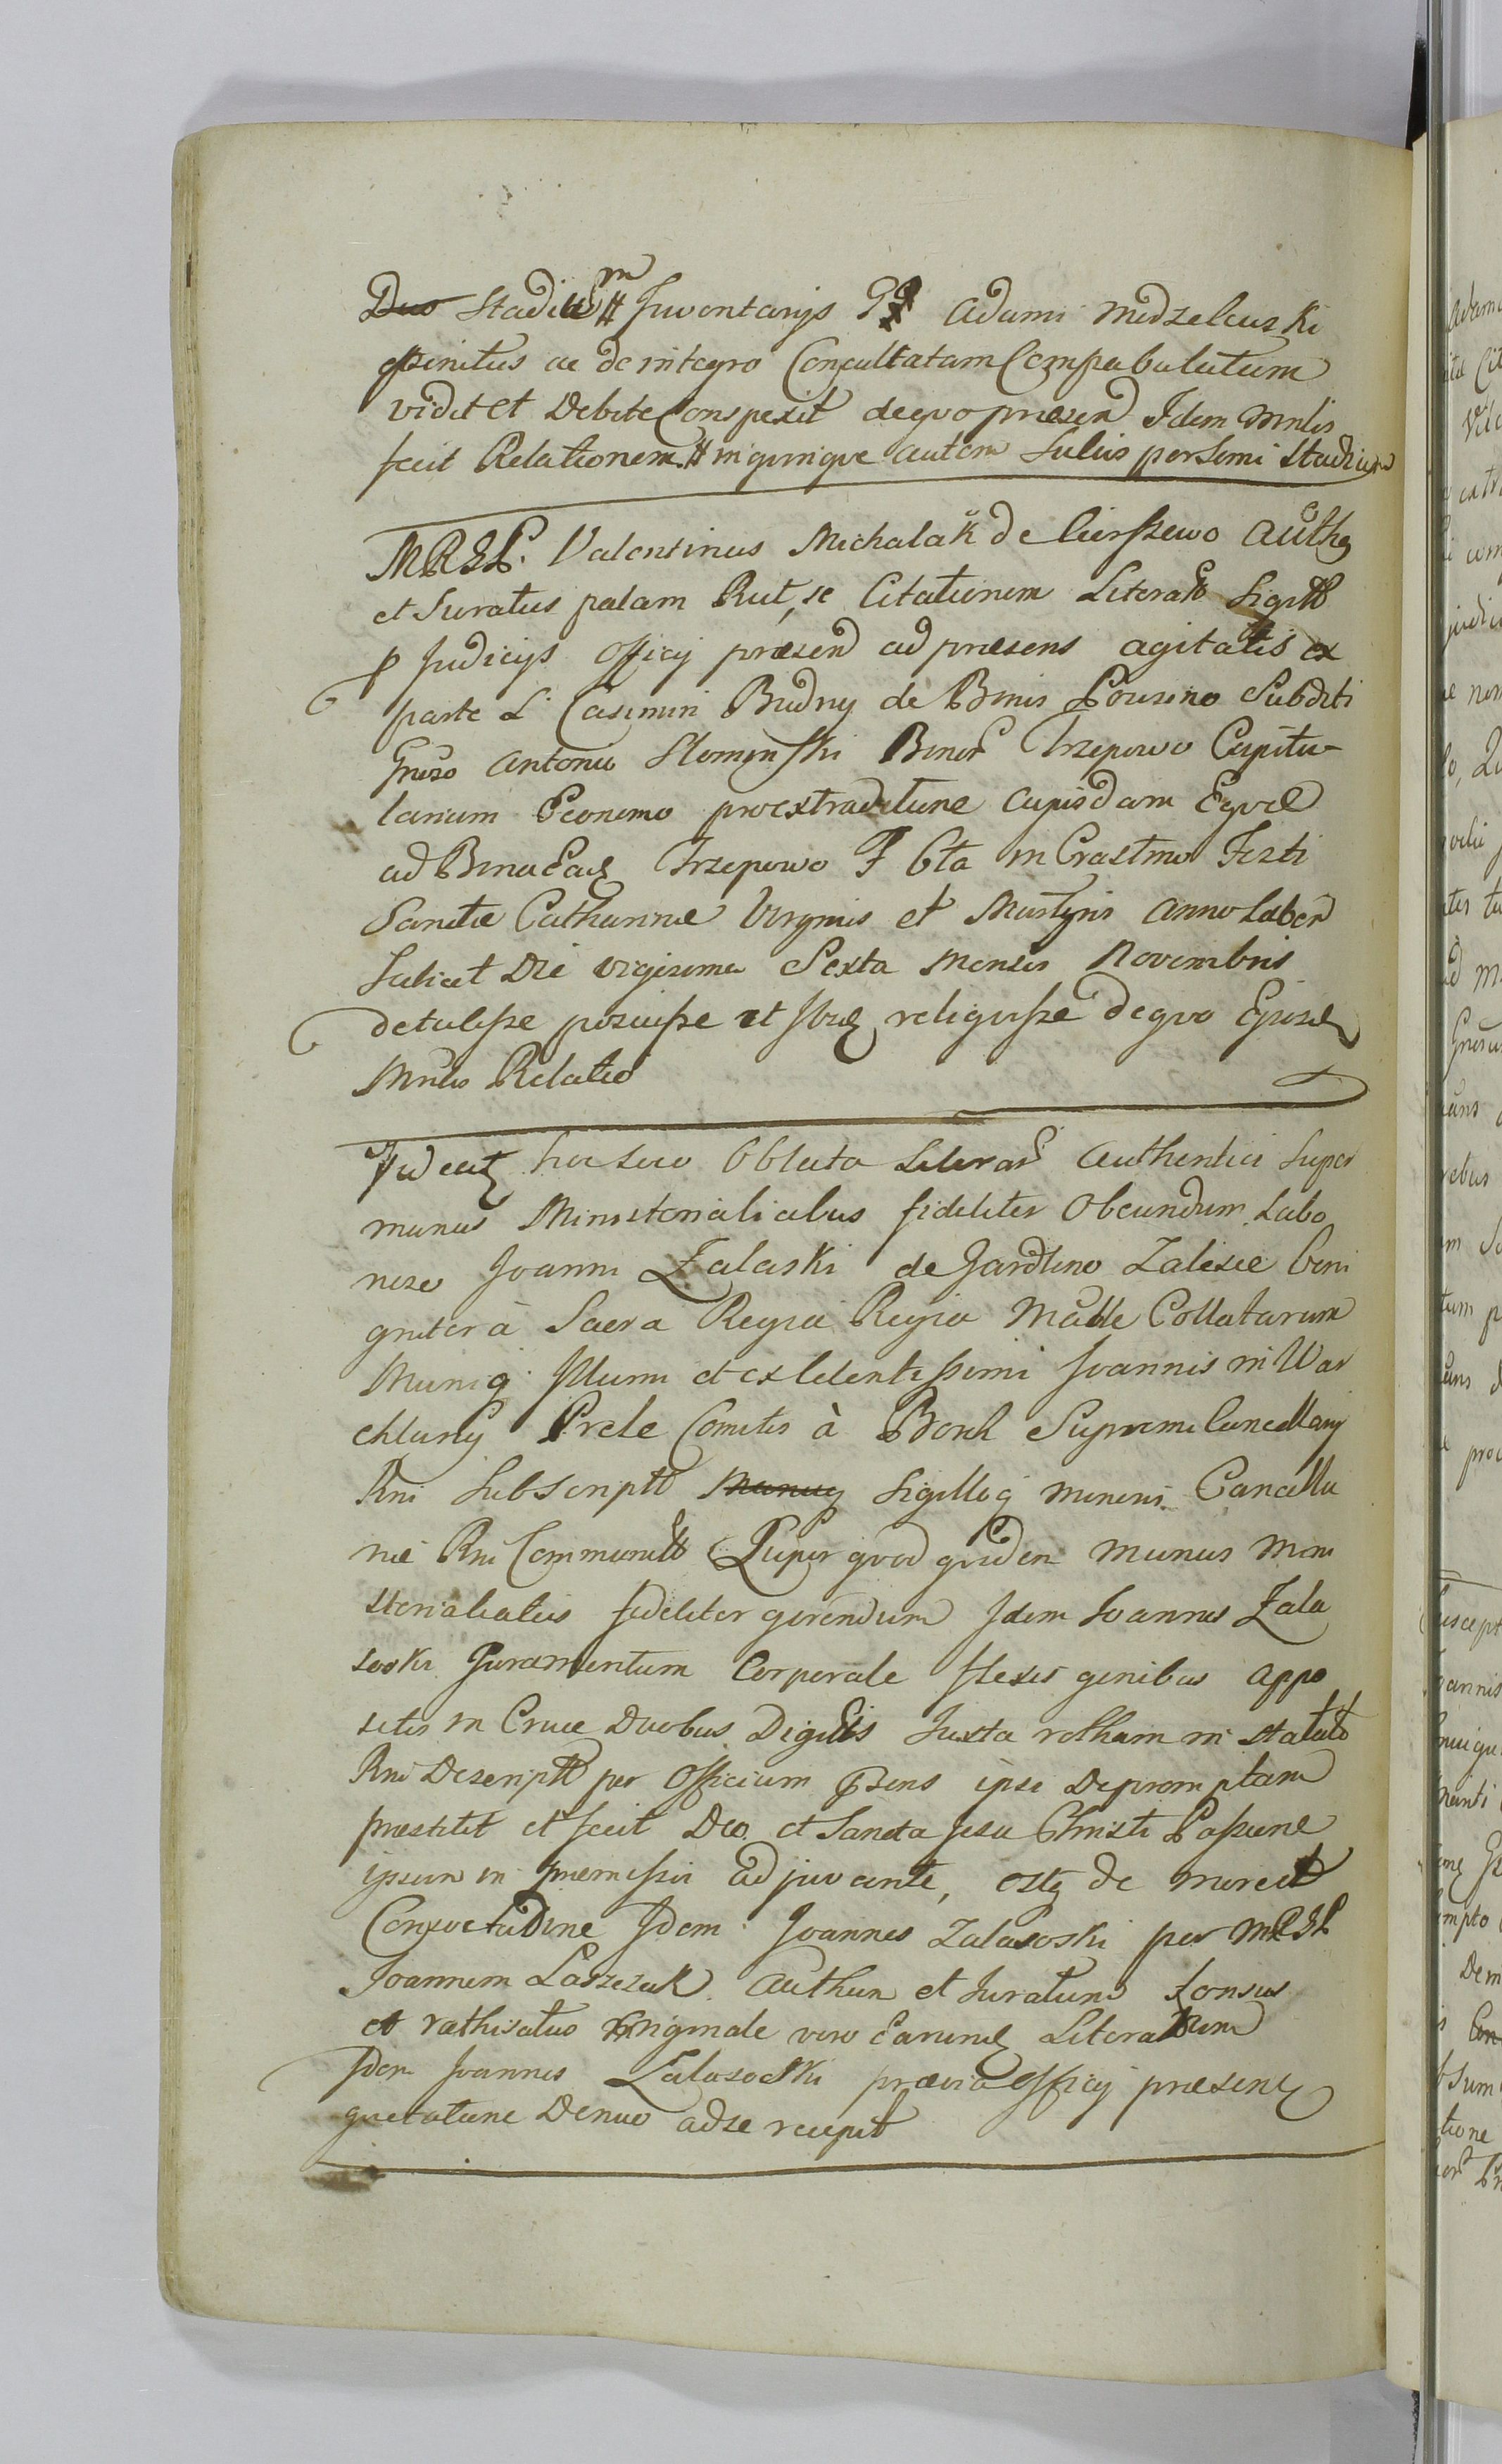 Duo Stadium # Inventarijs G Adami Mdzelewski
penitus ac de integro Conculcatam Compabulatam
vidit et Debite Conspexit de quo præsen Idem Mnlis
fecit Relationem # in quinque autem Sulcis per Semi Stadium
MRGL. Valentinus Michalak de Cierszewo Authen
et Juratus palam Rut, se Citationem Literar Sigill
p Judicijs Officij præsen ad præsens agitatis ex
parte L. Casimiri Budny de Bonis Pousino Subditi
Gnroso Antonio Slominski Bonor Trzepowo Capitu-
larium Economo pro extraditione cujusdam Equæ
ad Bona Ead Trzepowo F 6ta in Crastino Festi
Sanctæ Catharinæ Virginis et Martyris Anno Laben
Scilicet Die vigesima Sexta Mensis Novembris
detulisse posuisse et ibid reliquisse de quo Ejusd
Mnlis Relatio
hoc loco Oblata Literar Authentici Super
munus Ministerialiatus fideliter Obeundum Labo
rioso Joanni Zalaski de Jardlino Zalesie beni
gniter à Sacra Regia Regia Matte Collatarum
Manuq Illumi et Excellentissimi Joannis in War
chlany Prele Comitis à Borch Supremi Cancellarij
Rni Subscriptt Manuq Sigilloq minoris Cancella
riæ Rni Communitt Super quod quidem munus Mini
sterialiatus fideliter gerendum Idem Joannes Zala
soski Juramentum Corporale flexis genibus appo
sitis in Cruce Duobus Digitis Juxta rotham in Statuto
Rni Descriptt per Officium Præsens ipsi Depromptam
præstitit et fecit Deo et Sancta Jesu Christi Passione
ipsum in præmissis Adjuvante, estq de more et
Consvetudine Idem Joannes Zalasoski per MRGL
Joannem Laszczak Authen et Juratum tonsus
et rathisatus Originale vero Earund Literarum
Idem Joannes Zalasoski prævia Officij præsent
quietatione Denuo ad se recepit